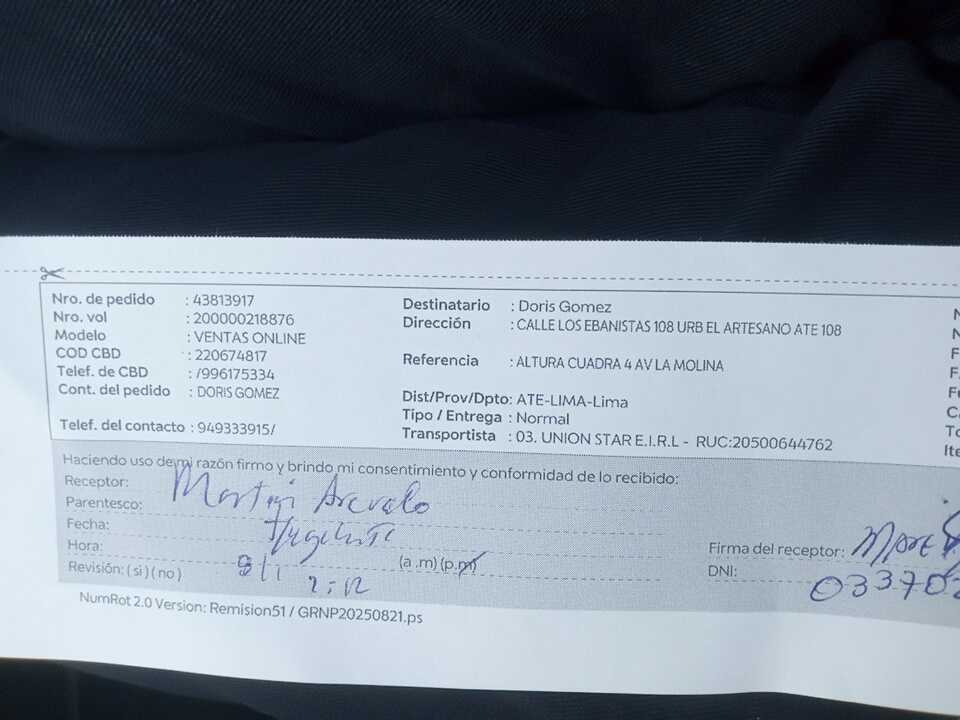 Nro. de pedido : 43813917
Nro. vol : 200000218876
Modelo : VENTAS ONLINE
COD CBD : 220674817
Telef. de CBD : /996175334
Cont. del pedido : DORIS GOMEZ
Telef. del contacto : 949333915/
Destinatario : Doris Gomez
Dirección : CALLE LOS EBANISTAS 108 URB EL ARTESANO ATE 108
Referencia : ALTURA CUADRA 4 AV LA MOLINA
Dist/Prov/Dpto: ATE-LIMA-Lima
Tipo / Entrega : Normal
Transportista : 03. UNION STAR E.I.R.L - RUC:20500644762
Haciendo uso de mi razón firmo y brindo mi consentimiento y conformidad de lo recibido:
Receptor: Martin Arevalo
Parentesco:
Fecha:
Hora: (a.m) (p.m)
Revisión: ( si ) ( no ) 2:12
Firma del receptor:
DNI: 03370
NumRot 2.0 Version: Remision51 / GRNP20250821.ps